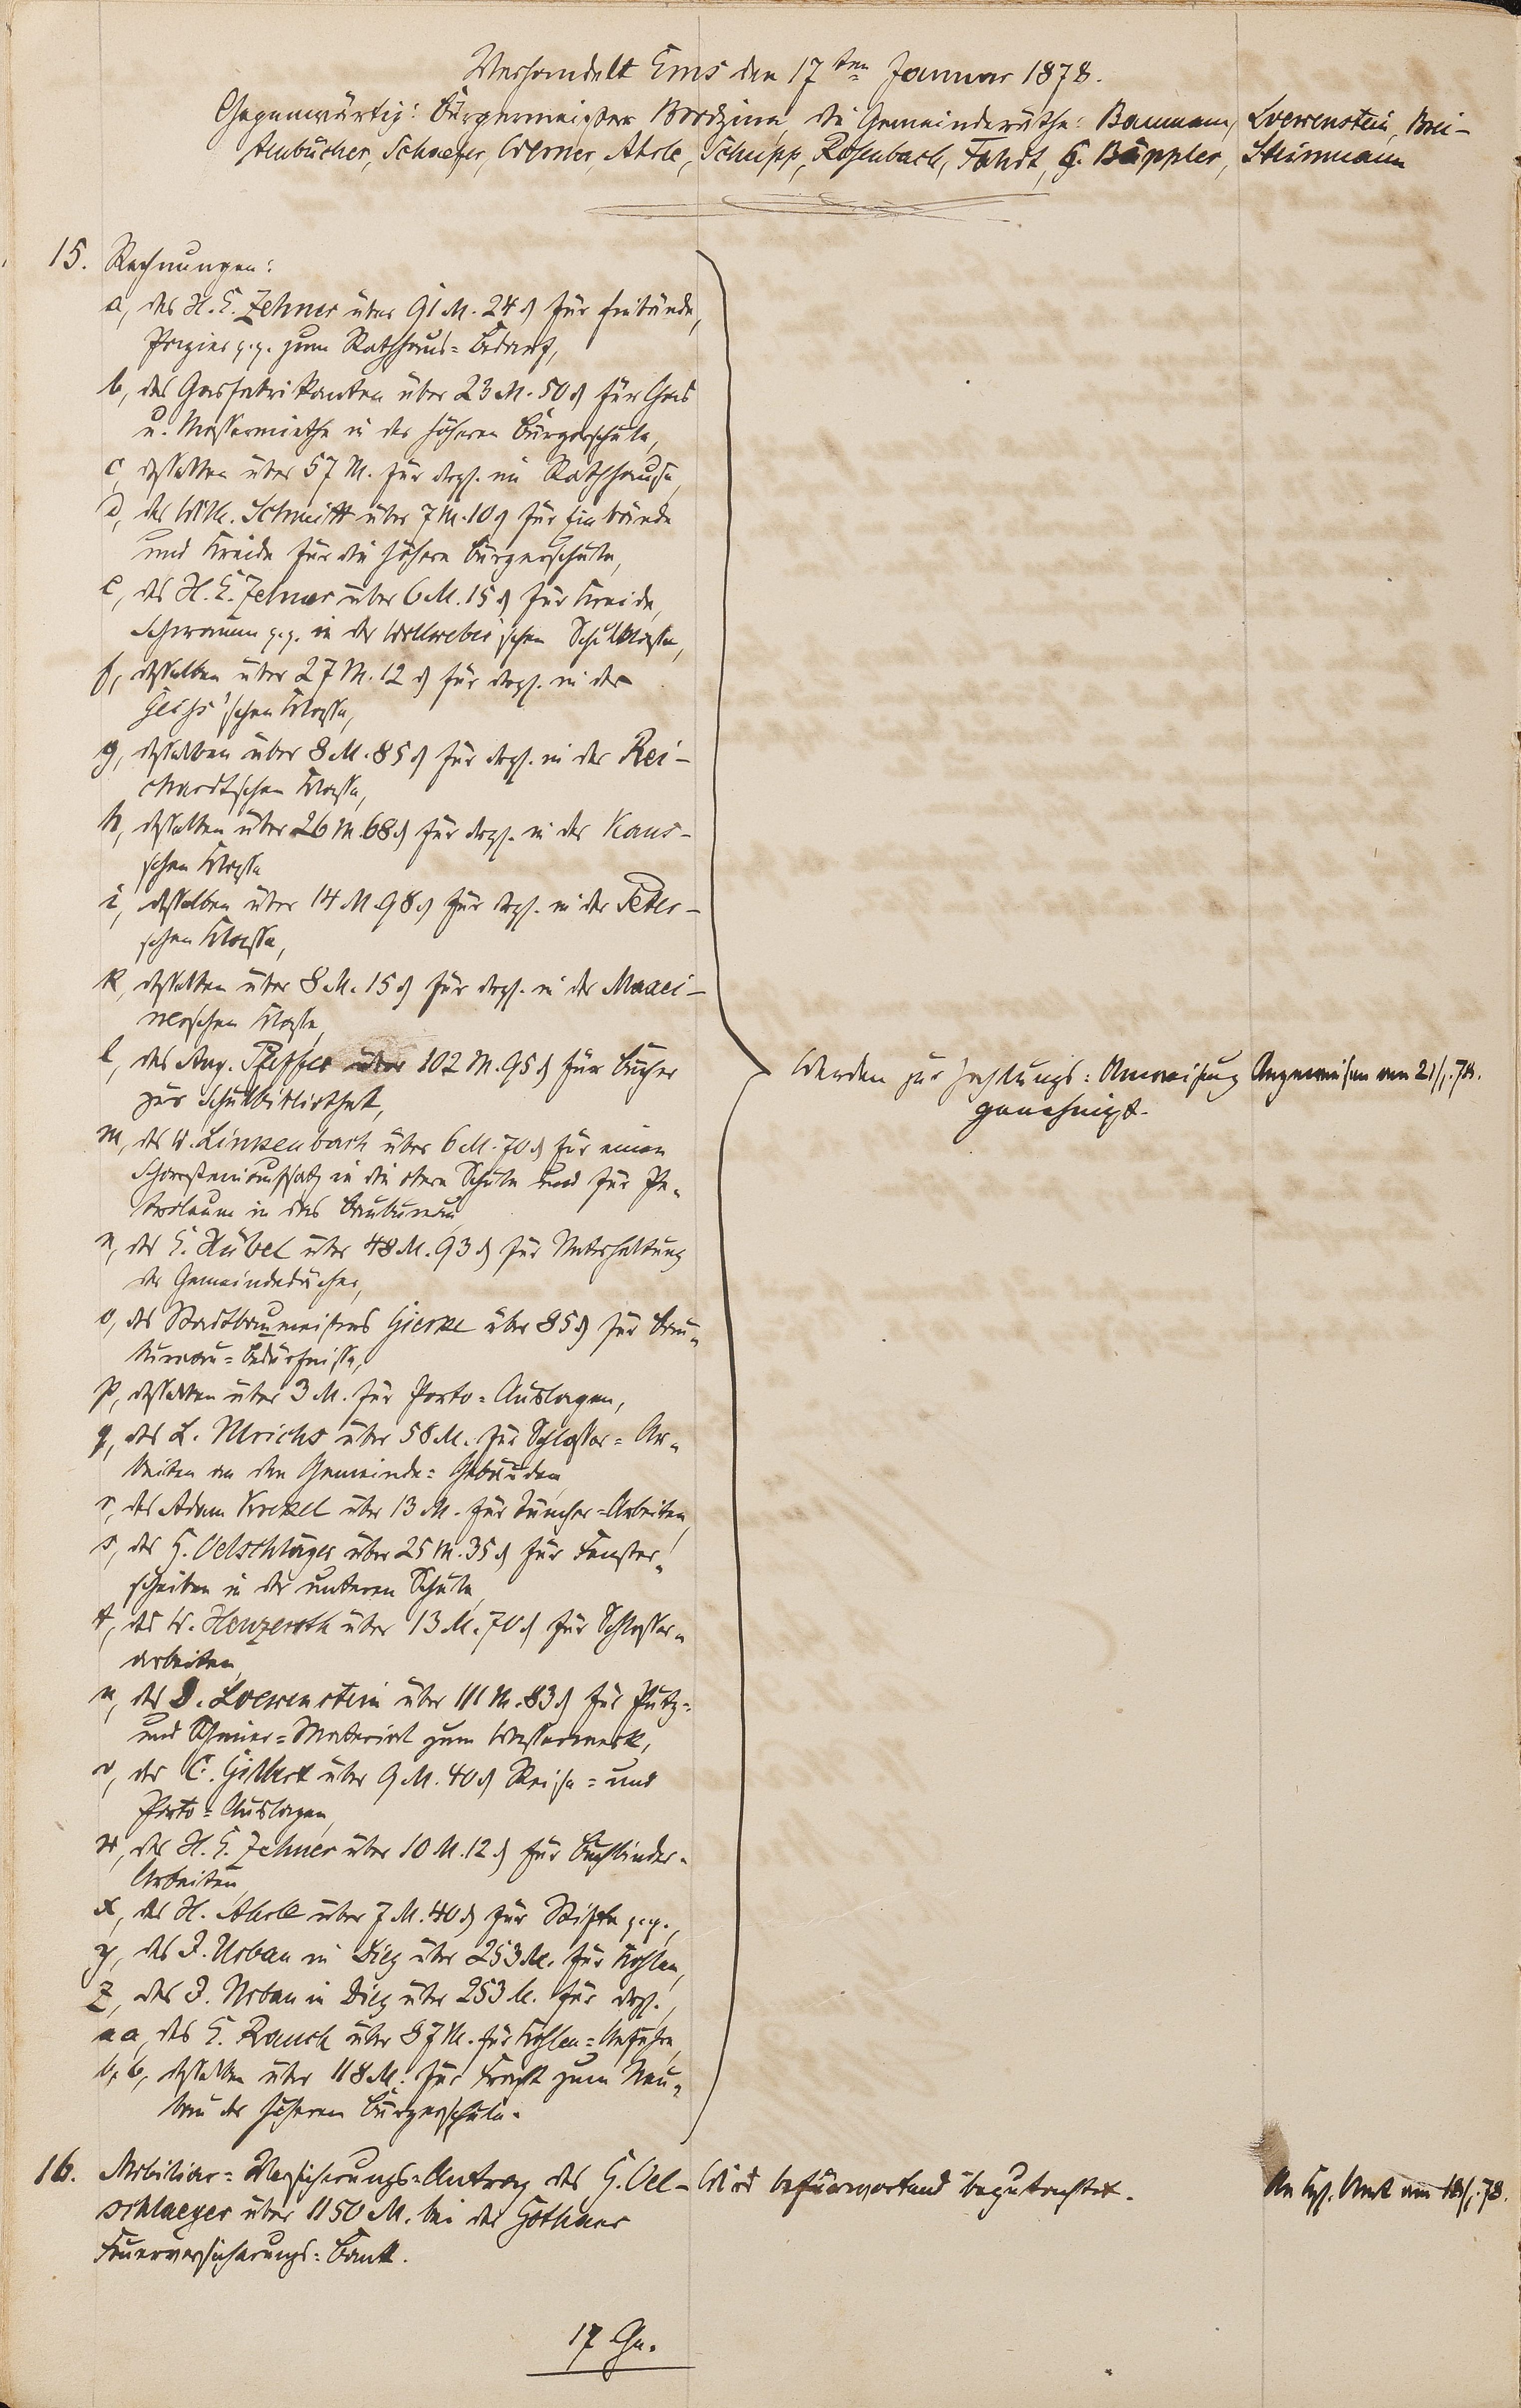 Verhandelt Ems den 17ten Januar 1878.
Gegenwärtig: Bürgermeister Nordzina, die Gemeinderäthe: Baumann, Loewenstein, Brei-
tenbücher, Schaefer, Werner, Ahrle, Schupp, Rosenbach, Fahdt, G. Bäppler, Steinmann
15. Rechnungen:
a, des H. E. Zehner über 91 M. 24 ₰ für Einbände,
Papier p.p. zum Rathhaus-Bedarf,
b, des Gasfabrikanten über 23 M. 50 ₰ für Gas
u. Messermiethe in der höheren Bürgerschule,
c, desselben über 57 M. für desgl. im Rathhause,
d, des Wilh. Schmitt über 7 M. 10 ₰ für Einbände
und Kreide für die höhere Bürgerschule,
e, des H. E. Zehner über 6 M. 15 ₰ für Kreide,
Schwamm p.p. in der Wollweber'schen Schulklasse,
f, desselben über 27 M. 12 ₰ für desgl. in der
'schen Klasse,
g, desselben über 8 M. 85 ₰ für desgl. in der Rei-
chardtschen Klasse,
h, desselben über 26 M. 68 ₰ für desgl. in der Kaus-
schen Klasse
i, desselben über 14 M. 98 ₰ für desgl. in der Peter-
schen Klasse,
k, desselben über 8 M. 15 ₰ für desgl. in der
schen Klasse,
l, des Aug. Pfeffer über 102 M. 95 ₰ für Bücher
zur Schulbibliothek,
m, des W. Linkenbach über 6 M. 70 ₰ für einen
Schornsteinaufsatz in die obere Schule und für Pe-
troleum in das Baubureau,
n, des E. Hübel über 48 M. 93 ₰ für Unterhaltung
der Gemeindedächer,
o, des Stadtbaumeisters Gierke über 85 ₰ für Bau-
bureau-Bedürfnisse,
p, desselben über 3 M. für Porto-Auslagen,
q, des L. Ulrichs über 58 M. für Schlosser-Ar-
beiten an den Gemeinde-Gebäuden,
r, des Adam Krekel über 13 M. für Tüncher-Arbeiten,
s, des G. Oelschläger über 25 M. 35 ₰ für Fenster-
scheiben in der unteren Schule,
t, des W. Henzeroth über 13 M. 70 ₰ für Schlosser-
arbeiten,
u, des D. Loewenstein über 111 M. 83 ₰ für Putz-
und Schmier-Material zum Wasserwerk,
v, des C. Gilbert über 9 M. 40 ₰ Reise- und
Porto-Auslagen,
w, des H. E. Zehner über 10 M. 12 ₰ für Buchbinder-
Arbeiten,
x, des H. Ahrle über 7 M. 40 ₰ für Stifte p.p.,
y, des J. Urban in Diez über 253 M. für Kohlen,
z, des J. Urban in Diez über 253 M. für desgl.,
aa, des E. Rauch über 87 M. für Kohlen-Anfuhr,
b,b, desselben über 118 M. für Fracht zum Neu-
bau der höheren Bürgerschule.
Werden zur Zahlungs-Anweisung
genehmigt.
Angewiesen am 21/1.78.
16. Mobiliar-Versicherungs-Antrag des G. Oel-
schlaeger über 1150 M. bei der Gothaer
Feuerversicherungs-Bank.
Wird befürwortend begutachtet.
An Kgl. Amt am 18/1.78.
17 Gn.